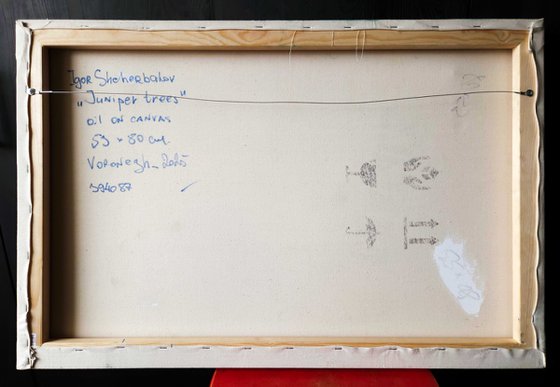 Igor Shcherbakov
„Juniper trees"
oil ON CANVAS
53 × 80 cm.
VORONEGh_ 2015
394087